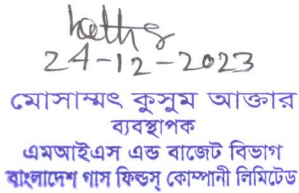 24-12-2023
মোসাম্মৎ কুসুম আক্তার
ব্যবস্থাপক
এমআইএস এন্ড বাজেট বিভাগ
বাংলাদেশ গ্যাস ফিল্ডস্ কোম্পানী লিমিটেড